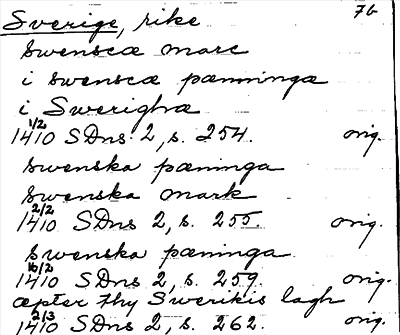 Sverige, rike 76
swenscæ marc
i swenscæ pænningæ
i Swerighæ
1/2
1410 SDns 2, s. 254. orig.
swenska pæninga
swenska mark
2/2
1410 SDns 2, s. 255. orig.
swenska pæninga
16/2
1410 SDns 2, s. 259. orig.
æpter thy Swerikis lagh
2/3
1410 SDns 2, s. 262. orig.